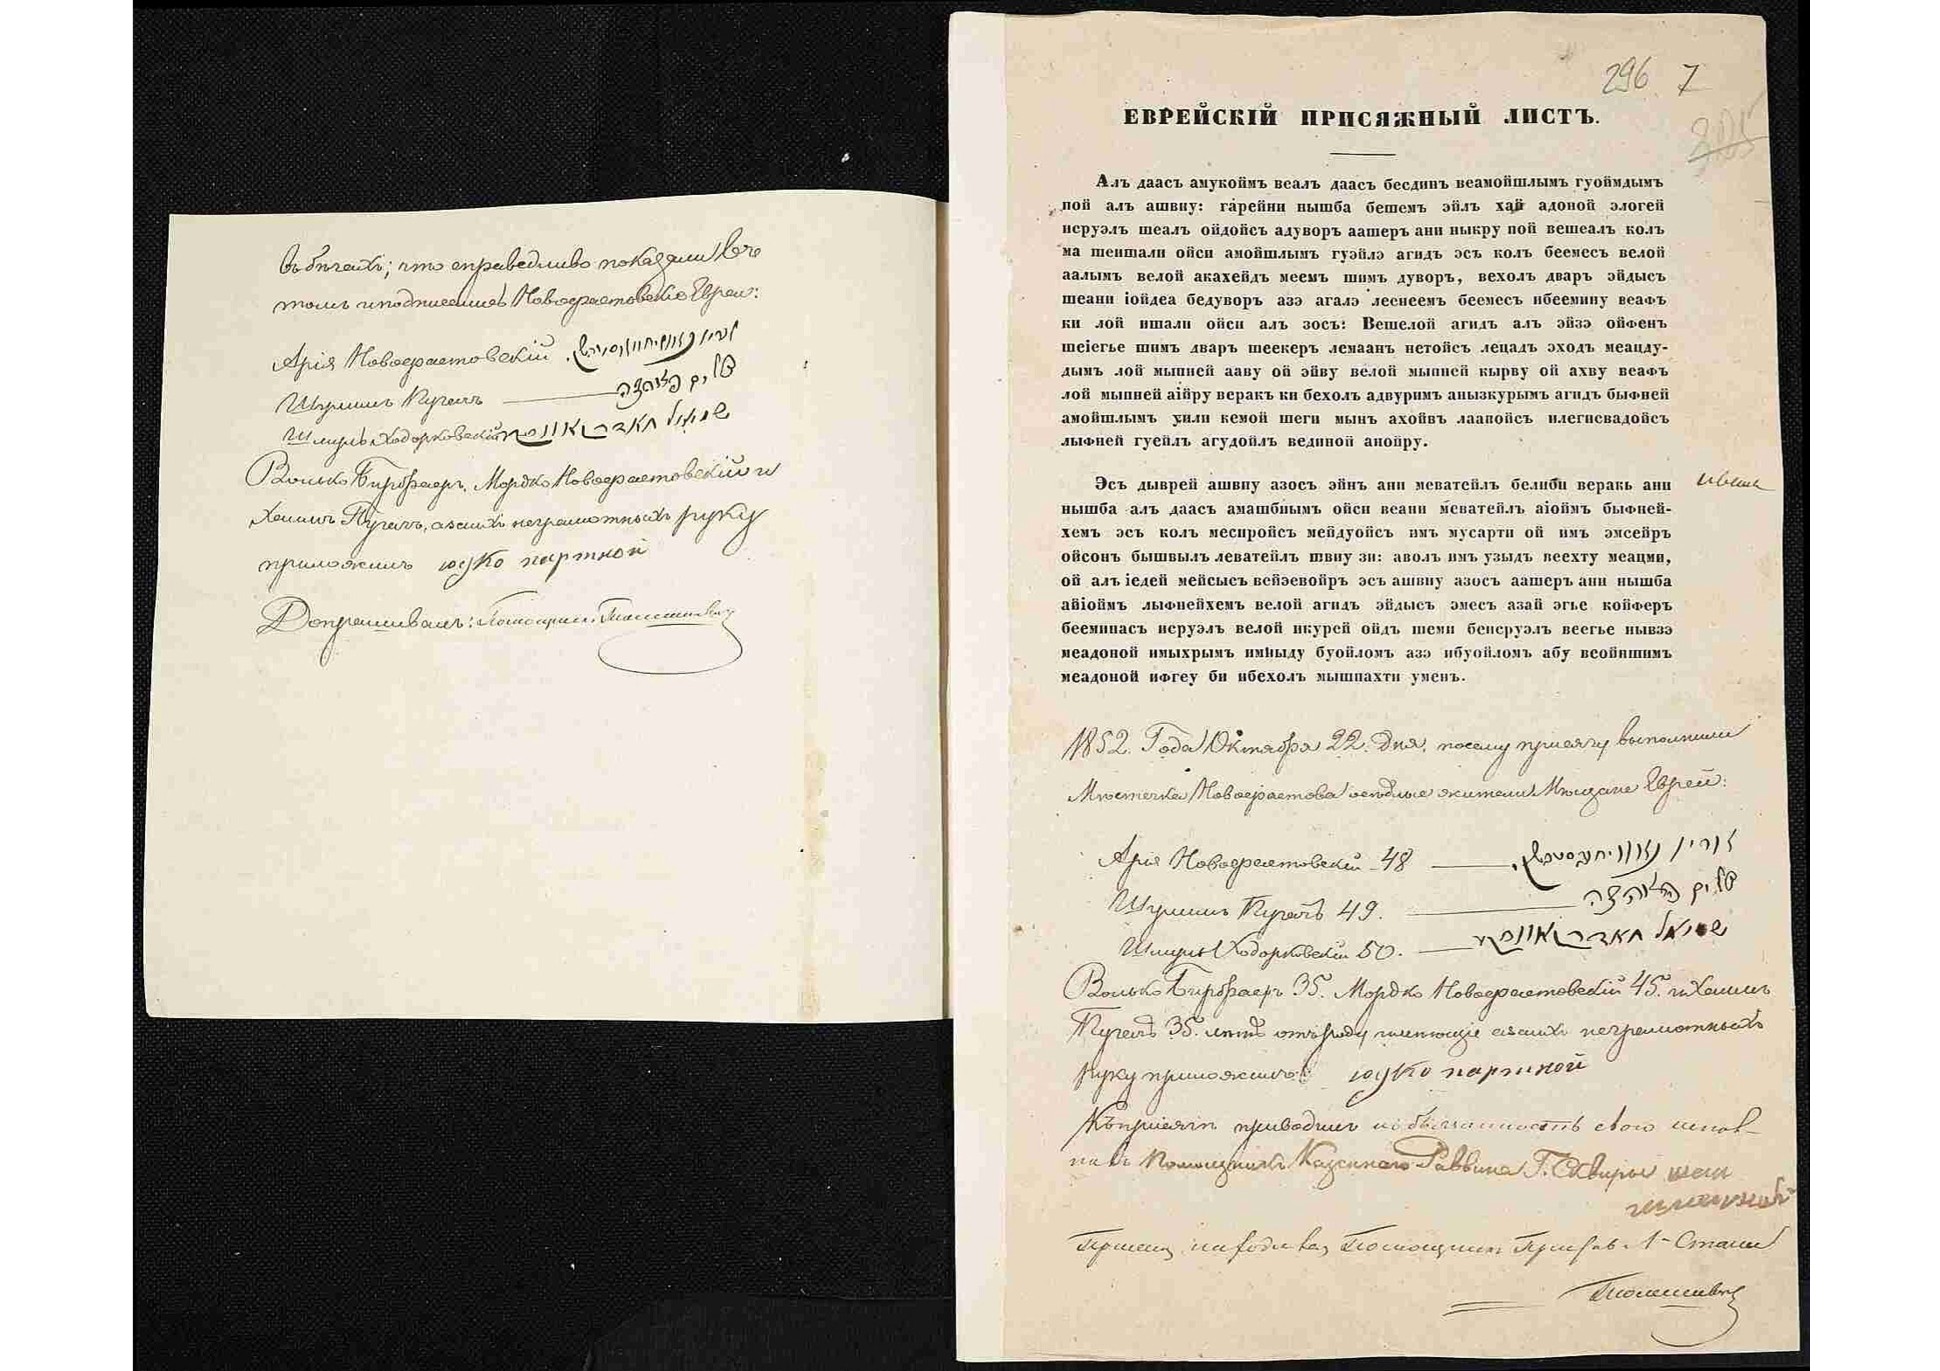 въ бѣгахъ; что справедливо показали въ
томъ и подписались Новофастовские Евреи:
Арія Новофастовскій
Шулимъ Пугачъ
Шмуль Ходорковскій שמואל
Волько Бирфаеръ, Мордко Новофастовскій и
Хаимъ Пугачъ, а за нихъ неграмотныхъ руку
приложилъ юдко партной
Допрашивалъ:
296 7
ЕВРЕЙСКІЙ ПРИСЯЖНЫЙ ЛИСТЪ.
Алъ даасъ амукоймъ веалъ даасъ бесдинъ веамойшлымъ гуоймдымъ
пой алъ ашвну: гарейни нышба бешемъ эйлъ хай адоной элогей
исруэлъ шеалъ ойдойсъ адуворъ аашеръ ани ныкру пой вешеалъ колъ
ма шеишали ойси амойшлымъ гуэйлэ агидъ эсъ колъ беемесъ велой
аалымъ велой акахейдъ меемъ шимъ дуворъ, вехолъ дваръ эйдысъ
шеани іойдеа бедуворъ азэ агалэ леснеемъ беемесъ ибеемину веафъ
ки лой ишали ойси алъ зосъ: Вешелой агидъ алъ эйзэ ойфенъ
шеіегье шимъ дваръ шеекеръ лемаанъ нетойсъ лецадъ эходъ меацду-
дымъ лой мыпней ааву ой эйву велой мыпней кырву ой ахву веафъ
лой мыпней аійру веракъ ки бехолъ адвуримъ анызкурымъ агидъ быфней
амойшлымъ уили кемой шеги мынъ ахойвъ лаапойсъ илегисвадойсъ
лыфней гуейлъ агудойлъ вединой анойру.
Эсъ дыврей ашвну азосъ эйнъ ани меватейлъ белиби веракъ ани
нышба алъ даасъ амашбиымъ ойси веани меватейлъ аіоймъ быфней-
хемъ эсъ колъ месиройсъ мейдуойсъ имъ мусарти ой имъ эмсейръ
ойсонъ бышвылъ леватейлъ швну зи: аволъ имъ узыдъ веехту меацми,
ой алъ іедей мейсыеъ вейзевойръ эсъ ашвну азосъ аашеръ ани нышба
айіоймъ лыфнейхемъ велой агидъ эйдысъ эмесъ азай эгье койферъ
бееминасъ исруэлъ велой икурей ойдъ шеми бенсруэлъ веегье нывзэ
меадоной имыхрымъ имныду буойломъ азэ ибуойломъ абу веойншимъ
меадоной ифгеу би ибехолъ мышпахти уменъ.
1852. Года Октября 22. дня, посему присягу выполнили
Мѣстечка Новофастова осѣдлые жители Мѣщане Евреи:
Арія Новофастовскій 48
Шулимъ Пугачъ 49.
Шмуль Ходорковскій 50. שמואל
Волько Бирфаеръ 35. Мордко Новофастовскій 45. и Хаимъ
Пугачъ 35. лѣтъ отъ роду имеющіе а за нихъ неграмотныхъ
руку приложилъ: юдко партной
Къ присягѣ приводилъ и обязанность свою
Помощникъ Казенного Раввина Г. Сквиры
Помощникъ 1 Стана